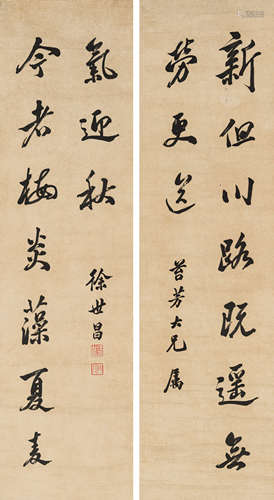 新但川路既遥無
勞更送
苔芳大兄属
今者梅炎藻夏麦
氣迎秋
徐世昌